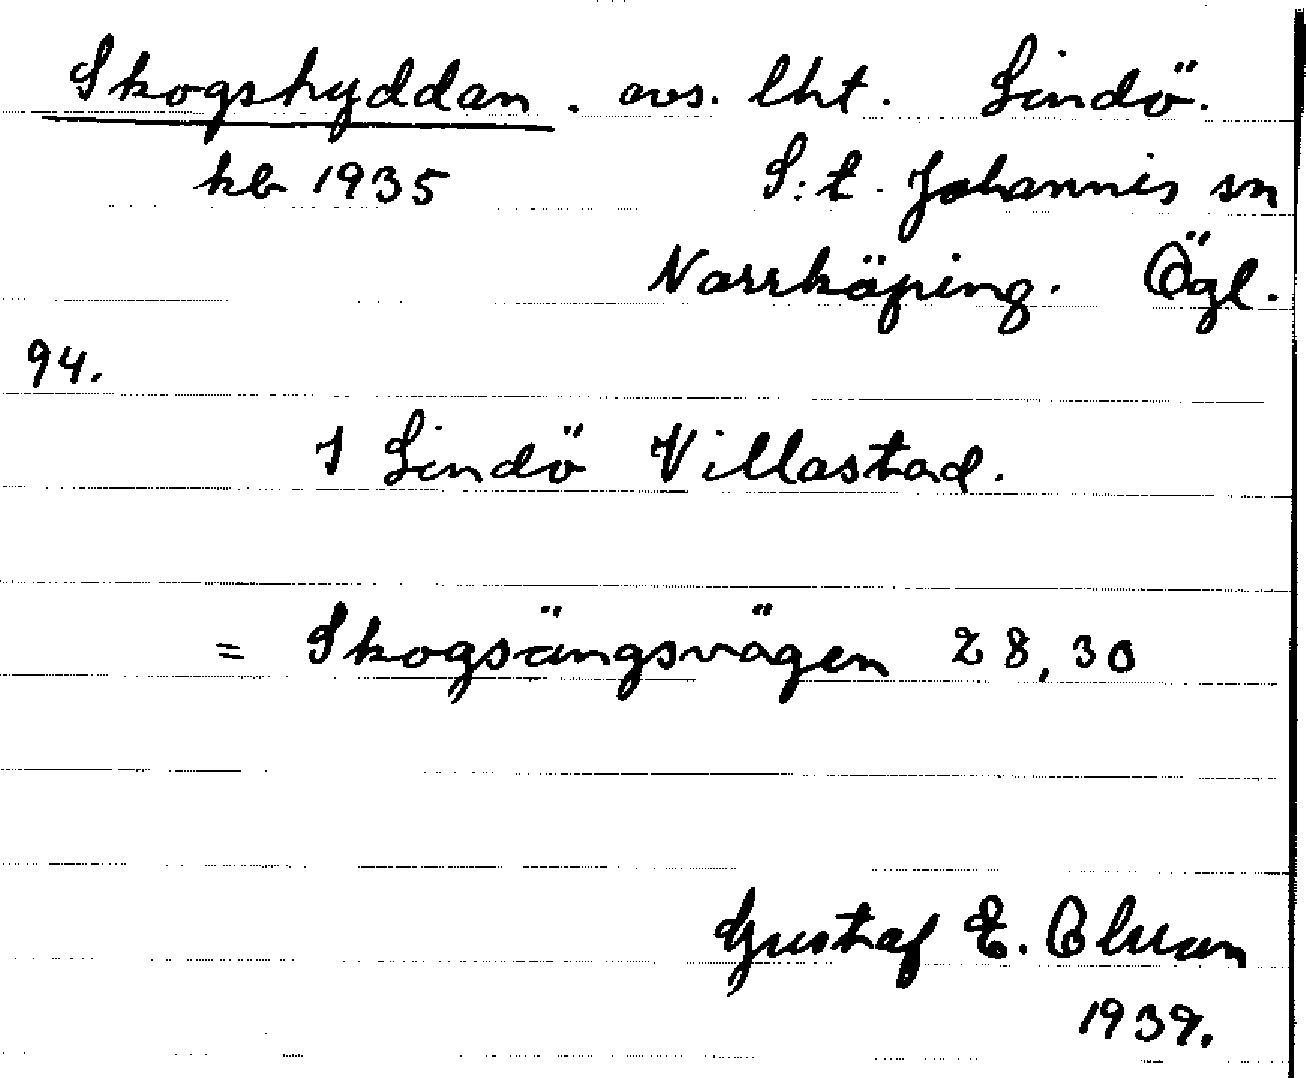 Skogshyddan. avs. lht. Lindö.
kb 1935 S:t. Johannis sn
Norrköping. Ögl.
94.
I Lindö Villastad.
= Skogsängsvägen 28, 30
Gustaf E. Olsson
1939.